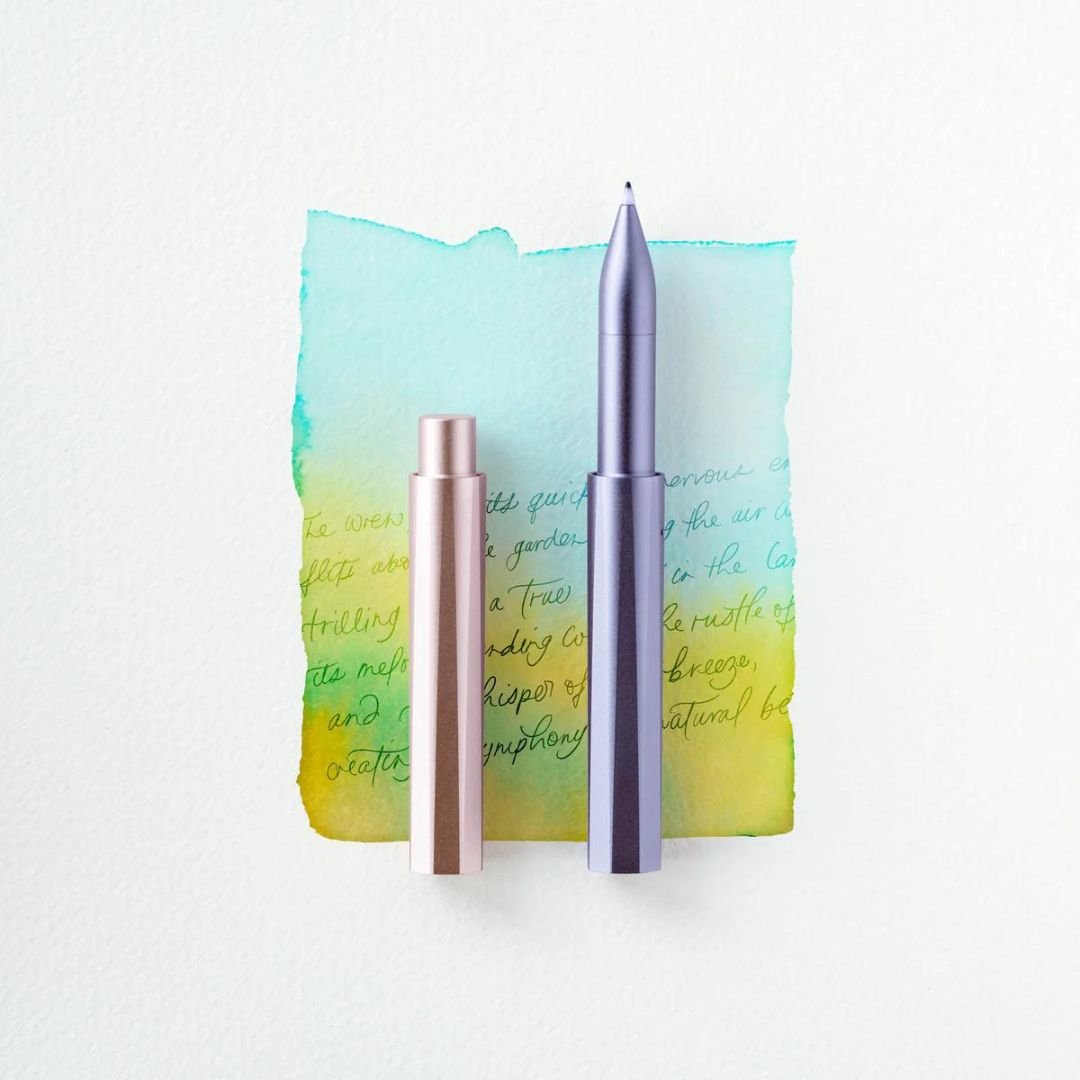 The wren, its quick nervous en
flits abo e garden g the air a
trilling a True in the lan
its melo nding co he rustle of
and hisper of breeze,
creating symphony natural be